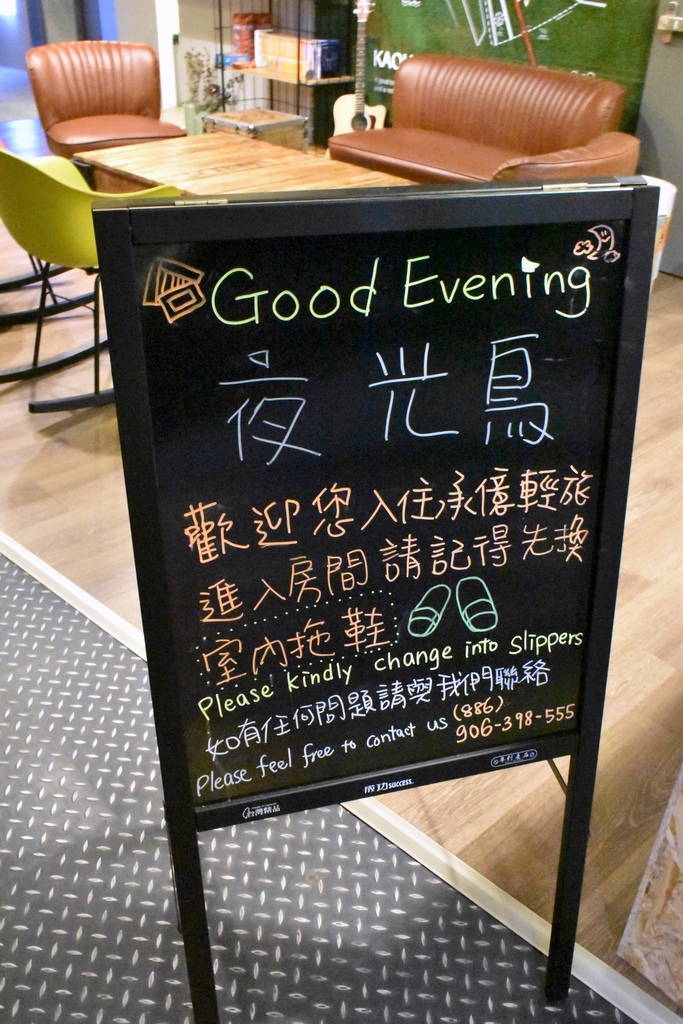 KAOH
Good Evening
夜光鳥
歡迎您入住承億輕旅
進入房間請記得先換
室內拖鞋
Please kindly change into slippers
如有任何問題請與我們聯絡
Please feel free to contact us (886)
906-398-555
成功 success.
台灣精品